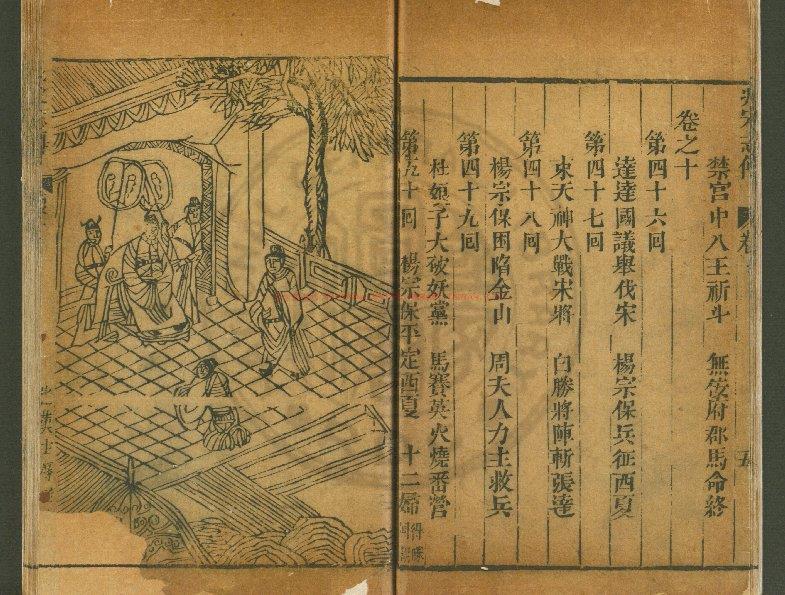 禁宮中八王祈斗　無佞府郡馬命終
卷之十
第四十六囘
達達國議舉伐宋　楊宗保兵征西夏
第四十七囘
東天神大戰宋將　白勝將陣斬張達
第四十八囘
楊宗保困陷金山　周夫人力主救兵
第四十九囘
杜娘子大破妖黨　馬賽英火燒番營
第五十囘　楊宗保平定西夏　十二婦得勝
五